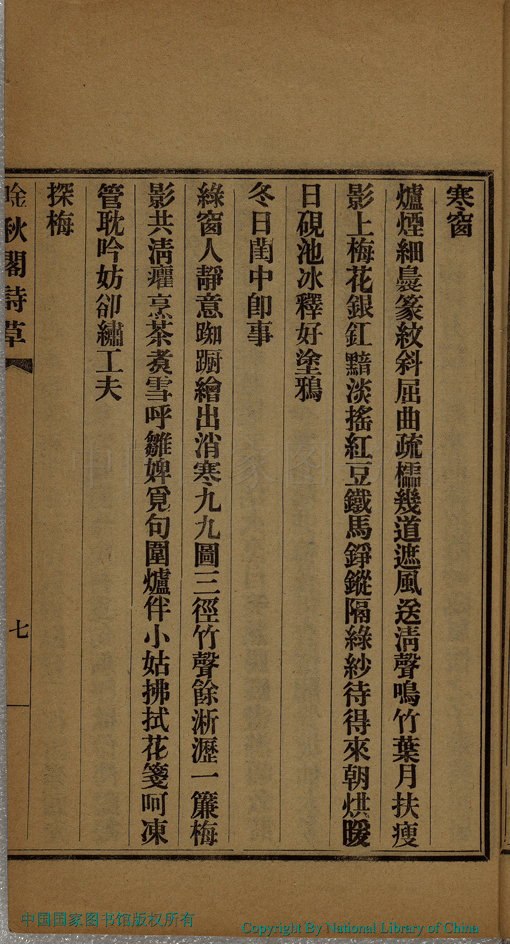 寒窗
爐煙細裊篆紋斜屈曲疏櫺幾道遮風送淸聲鳴竹葉月扶瘦
影上梅花銀釭黯淡搖紅豆鐵馬錚鏦隔綠紗待得來朝烘暖
日硯池冰釋好塗鴉
冬日閨中卽事
綠窗人靜意踟蹰繪出消寒九九圖三徑竹聲餘淅瀝一簾梅
影共淸癯烹茶煑雪呼雛婢覓句圍爐伴小姑拂拭花箋呵凍
管耽吟妨卻繡工夫
探梅
唫秋閣詩草
七
中国国家图书馆版权所有
Copyright By National Library of China